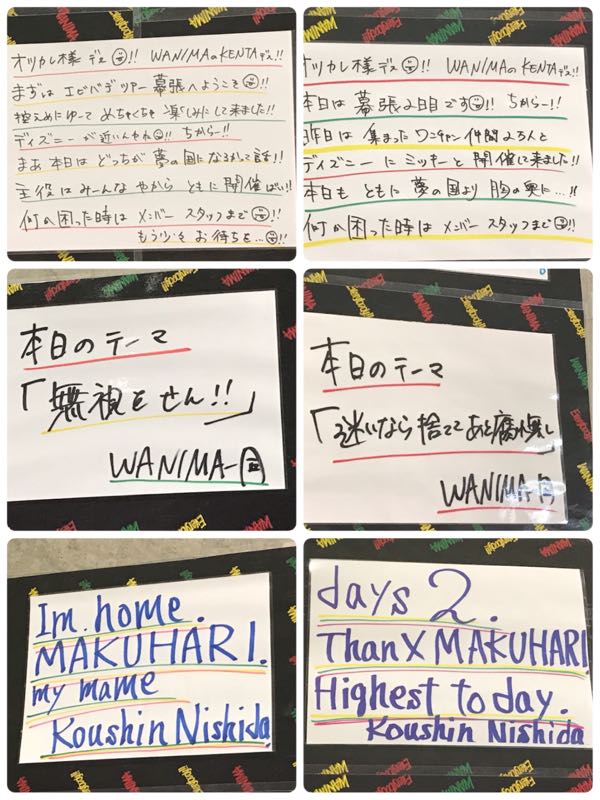 オツカレ様デス!! WANIMAのKENTAデス!!
まずは エビバデツアー 幕張へようこそ!!
控えめにゆーて めちゃくちゃ 楽しみにして来ました!!
ディズニーが近いんやね!! ちからー!!
まあ 本日は どっちが 夢の国になるかって話!!
主役は みーんな やから ともに 開催ばい!!
何か困った時は メンバー スタッフまで!!
もう少々 お待ちを...
オツカレ様デス!! WANIMAのKENTAデス!!
本日は 幕張2日目です!! ちからー!!
昨日は 集まった ワンチャン仲間
ディズニーに ミッキーと 開催して来ました!!
本日も ともに 夢の国より 胸の奥に...!!
何か困った時は メンバー スタッフまで!!
本日のテーマ
「無視をせん!!」
WANIMA
本日のテーマ
「迷いなら捨てて あと腐れ無し
WANIMA
Im home.
MAKUHARI.
my mame
Koushin Nishida
days 2.
ThanX MAKUHARI
Highest today.
Koushin Nishida